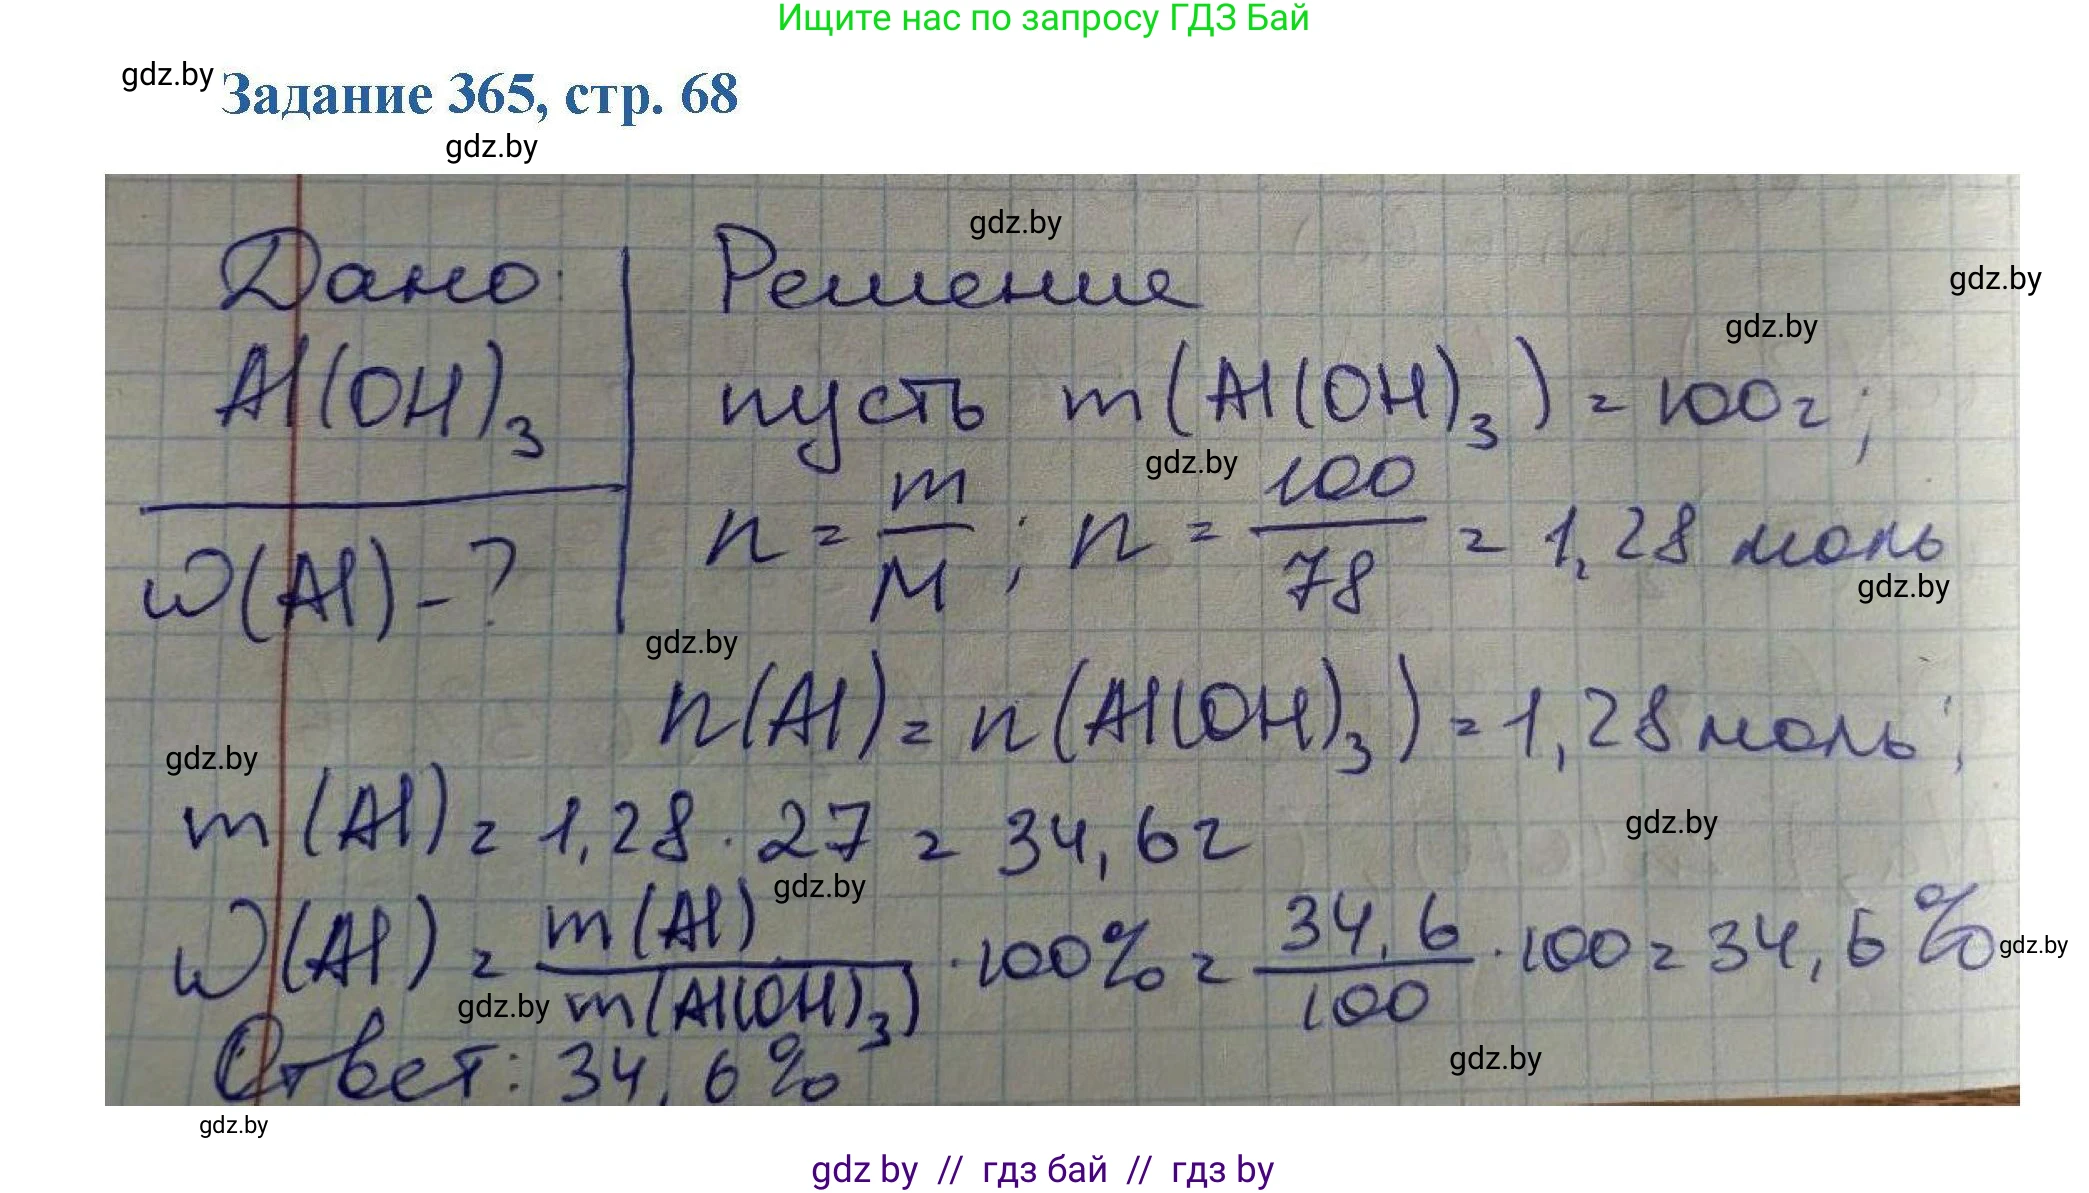 Ищите нас по запросу ГДЗ Бай
gdz.by
Задание 365, стр. 68
gdz.by
gdz.by
Дано: Решение
gdz.by
gdz.by
Al(OH)₃ пусть m(Al(OH)₃) = 100г;
gdz.by
n = m/M ; n = 100/78 = 1,28 моль
gdz.by
w(Al) - ?
gdz.by
n(Al) = n(Al(OH)₃) = 1,28 моль;
gdz.by
m(Al) = 1,28 · 27 = 34,6г
gdz.by
gdz.by
w(Al) = m(Al)/m(Al(OH)₃) · 100% = 34,6/100 · 100 = 34,6%
gdz.by
gdz.by
Ответ: 34,6%
gdz.by
gdz.by
gdz by // гдз бай // гдз by